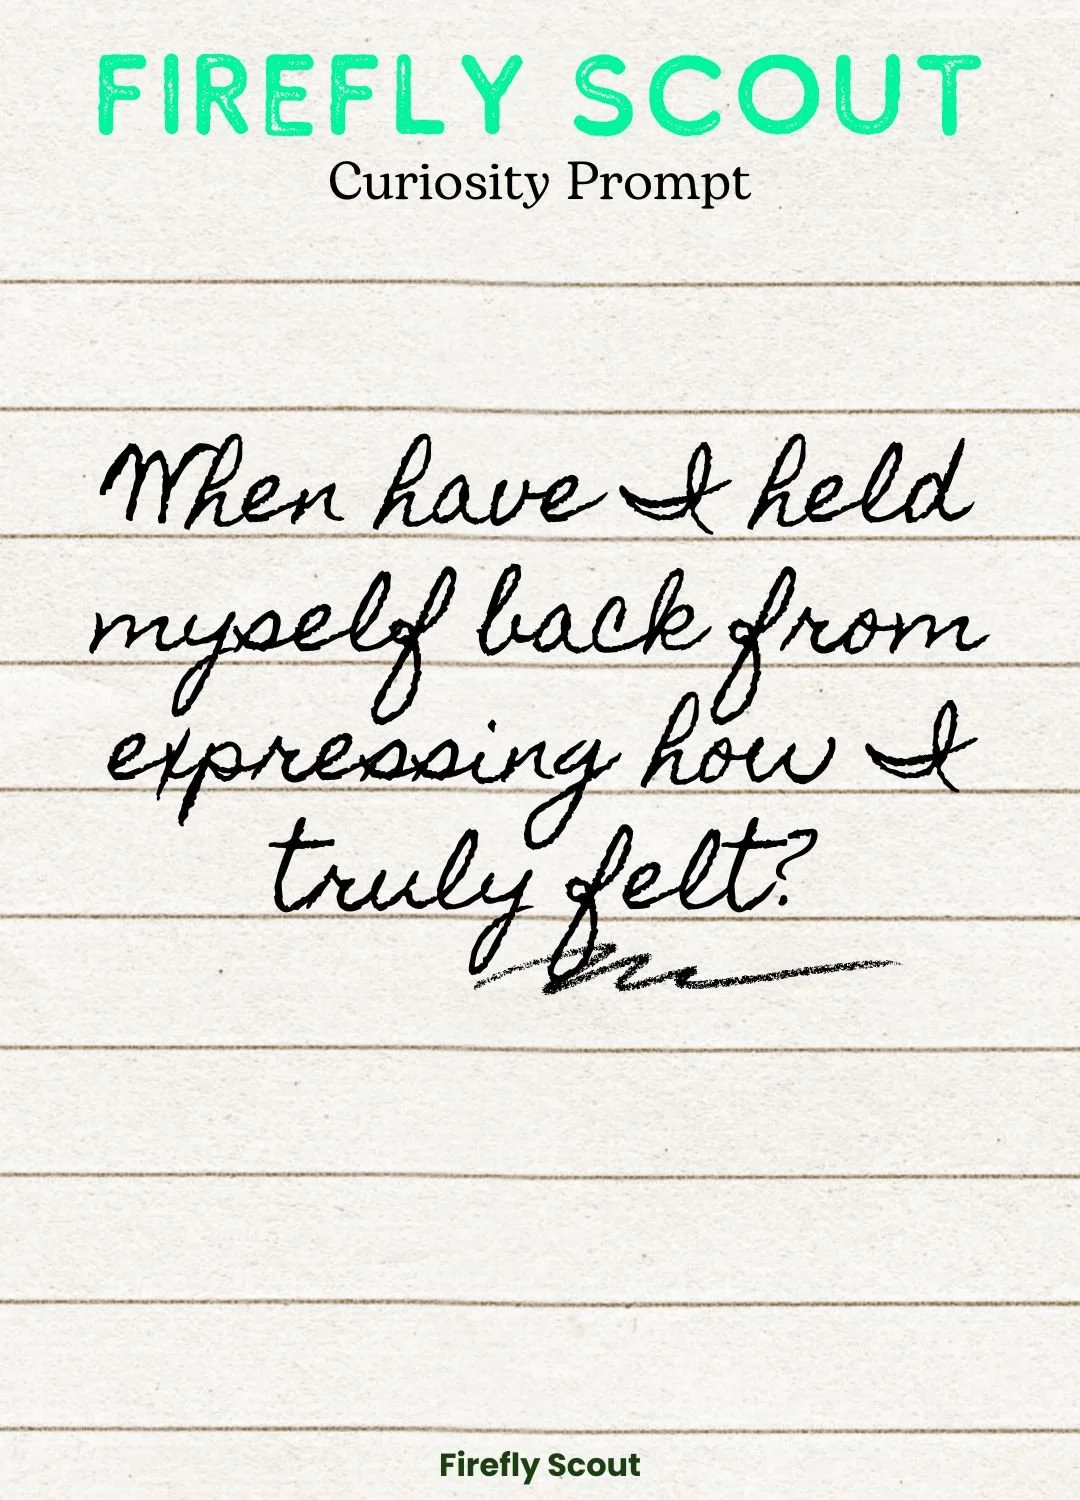 FIREFLY SCOUT
Curiosity Prompt
When have I held
myself back from
expressing how I
truly felt?
Firefly Scout